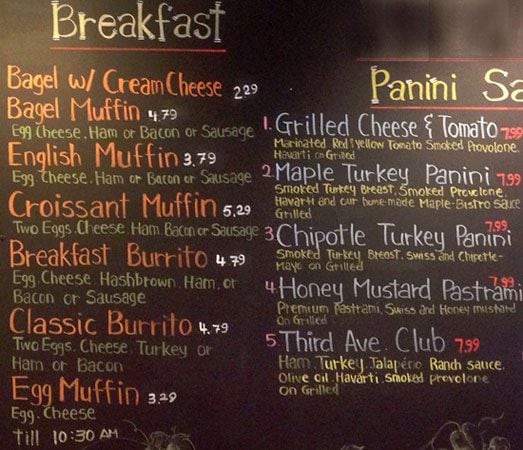 Breakfast
Bagel w/ Cream Cheese 2.29
Bagel Muffin 4.79
Egg Cheese, Ham or Bacon or Sausage
English Muffin 3.79
Egg, Cheese, Ham or Bacon or Sausage
Croissant Muffin 5.29
Two Eggs, Cheese Ham Bacon or Sausage
Breakfast Burrito 4.79
Egg, Cheese, Hashbrown, Ham, or
Bacon or Sausage
Classic Burrito 4.79
Two Eggs, Cheese, Turkey or
Ham or Bacon
Egg Muffin 3.29
Egg, Cheese
till 10:30 AM
Panini Sa
1. Grilled Cheese & Tomato 7.99
Marinated Red & Yellow Tomato Smoked Provolone,
Havarti on Grilled
2. Maple Turkey Panini 7.99
Smoked Turkey Breast, Smoked Provolone,
Havarti and our home-made Maple-Bistro Sauce
Grilled
3. Chipotle Turkey Panini 7.99
Smoked Turkey Breast, Swiss and Chipotle-
Mayo on Grilled
4. Honey Mustard Pastrami 7.99
Premium Pastrami, Swiss and Honey mustard
On Grilled
5. Third Ave. Club 7.99
Ham, Turkey, Jalapeño Ranch sauce,
Olive oil, Havarti, Smoked provolone
On Grilled